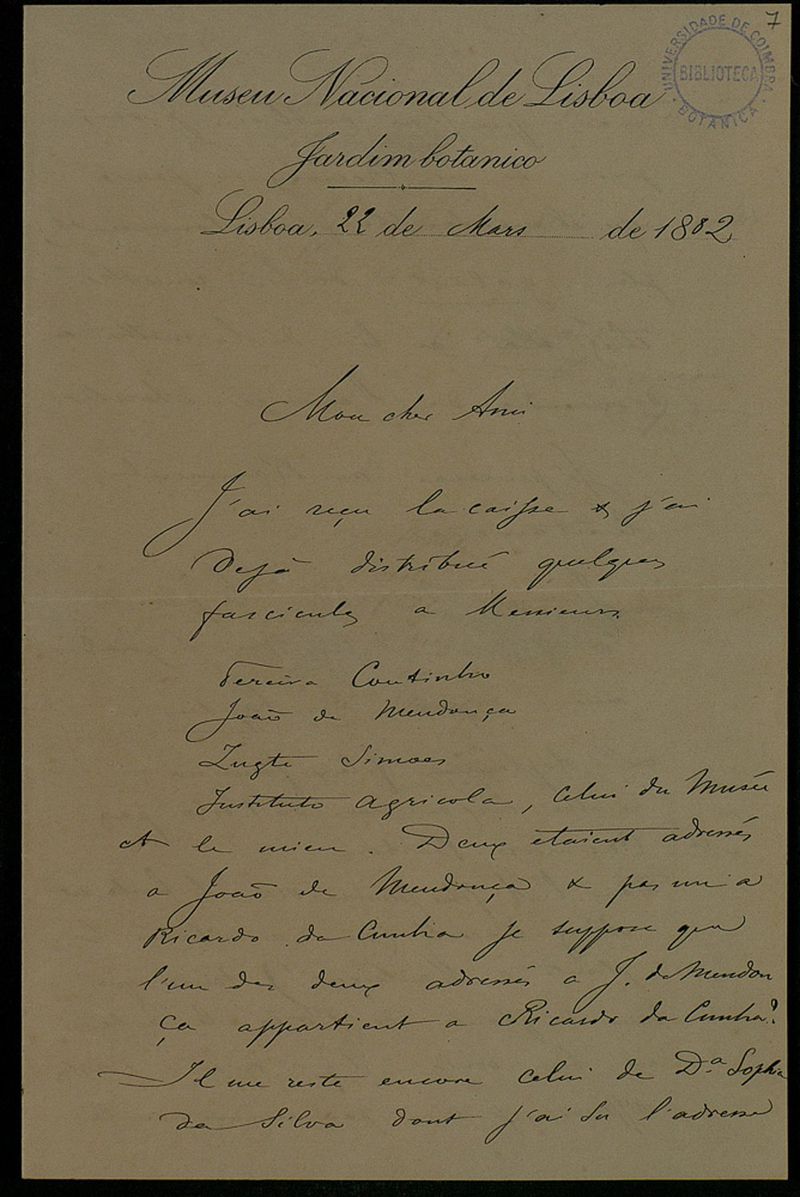 7
UNIVERSIDADE DE COIMBRA
BIBLIOTECA
BOTANICA
Museu Nacional de Lisboa
Jardim botanico
Lisboa, 22 de Mars de 1882
Mon cher Ami
J'ai reçu la caisse & j'ai
dejà distribué quelques
fascicules a Messieurs
Pereira Coutinho
João de Mendonça
Simoes
Instituto agricola, celui du Musée
et le mien. Deux etaient adressés
a João de Mendonça & pas un a
Ricardo da Cunha je suppose que
l'un des deux adressés a J. de Mendon
ça appartient a Ricardo da Cunha?
Il me reste encore celui de D.a Sophia
da Silva dont j'ai su l'adresse